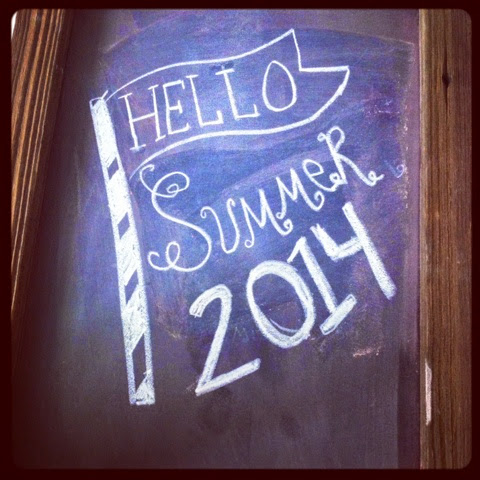 HELLO
SUMMER
2014